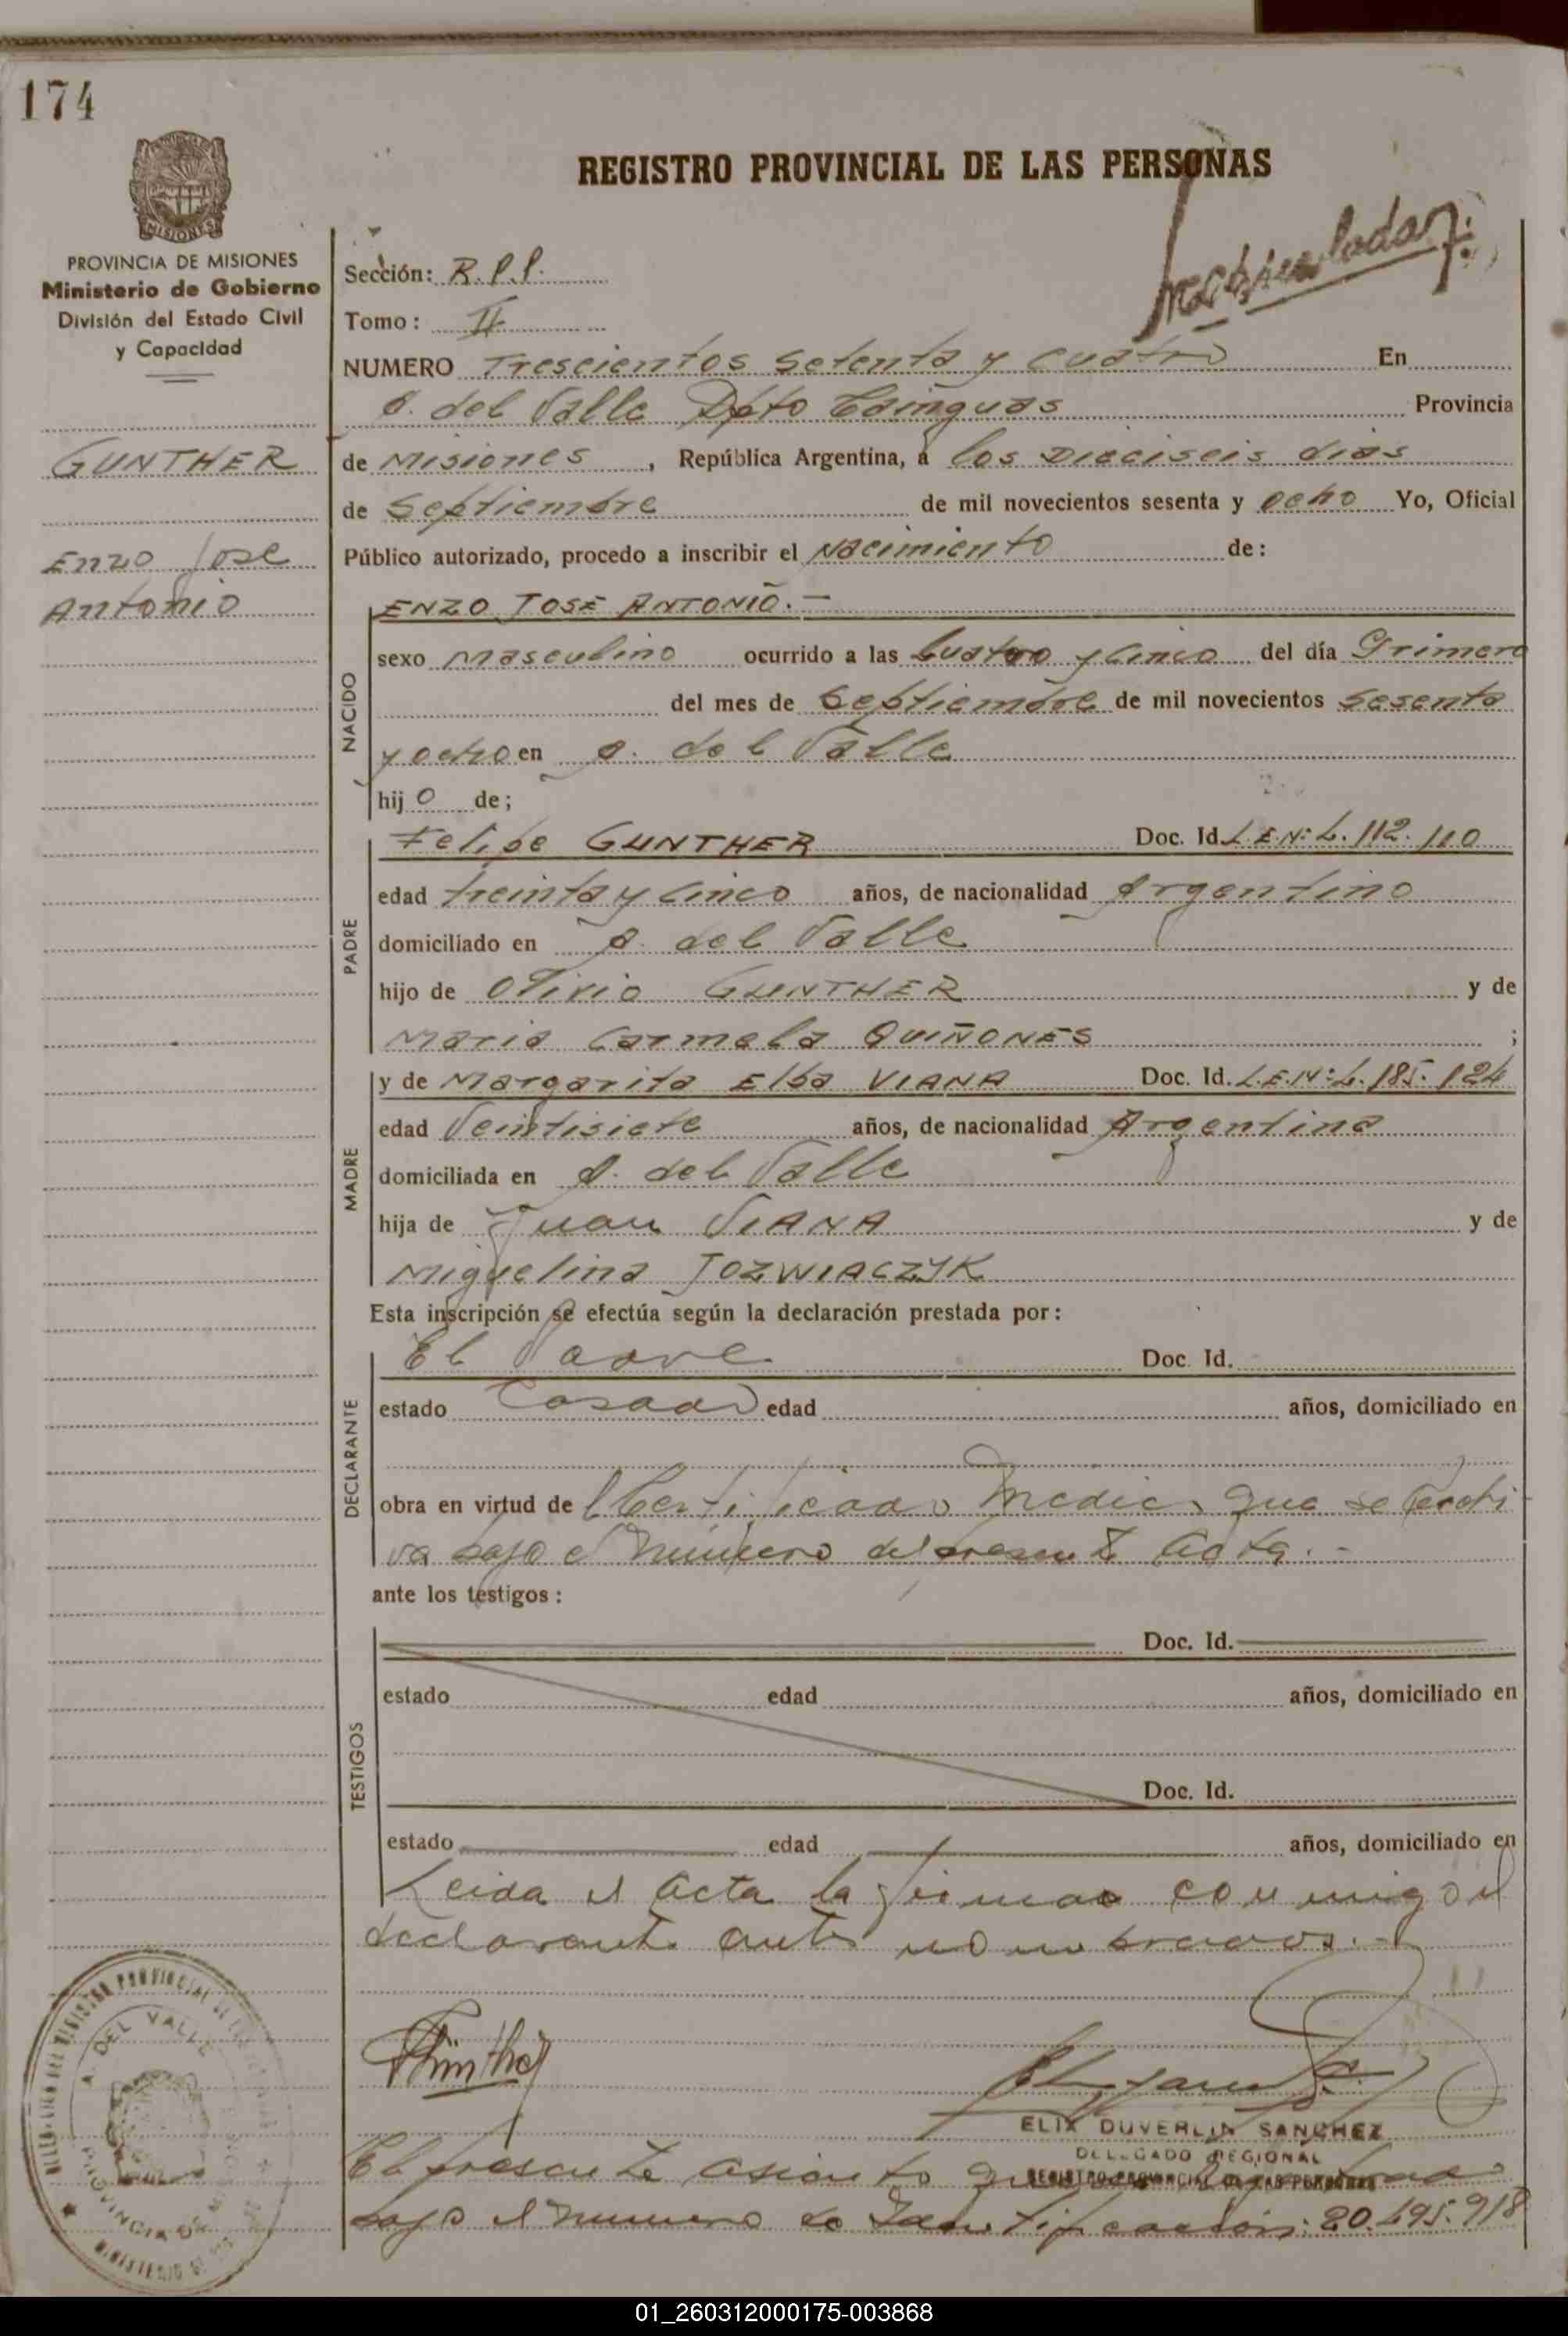 174
REGISTRO PROVINCIAL DE LAS PERSONAS
PROVINCIA DE MISIONES
Ministerio de Gobierno
División del Estado Civil
y Capacidad
Sección: R.P.P.
Tomo: II
NUMERO Trescientos setenta y cuatro En
A. del Valle Dpto Cainguas Provincia
GUNTHER
de Misiones, República Argentina, a los Dieciseis dias
de Septiembre de mil novecientos sesenta y ocho Yo, Oficial
Enzo Jose
Antonio
Público autorizado, procedo a inscribir el Nacimiento de:
NACIDO
ENZO JOSE ANTONIO.—
sexo Masculino ocurrido a las Cuatro y Cinco del día Primero
del mes de Septiembre de mil novecientos sesenta
y ocho en A. del Valle
hijo de;
PADRE
Felipe GUNTHER Doc. Id.
edad treinta y Cinco años, de nacionalidad Argentino
domiciliado en A. del Valle
hijo de Olivio GUNTHER y de
Maria Carmela QUIÑONES ;
MADRE
y de Margarita Elba VIANA Doc. Id.
edad Veintisiete años, de nacionalidad Argentina
domiciliada en A. del Valle
hija de Juan VIANA y de
Miguelina JOZWIACZYK
Esta inscripción se efectúa según la declaración prestada por:
DECLARANTE
El Padre Doc. Id.
estado Casado edad años, domiciliado en
obra en virtud de l Certificado Medico que se archi
va bajo el número del presente Acta.-
ante los testigos:
TESTIGOS
Doc. Id.
estado edad años, domiciliado en
Doc. Id.
estado edad años, domiciliado en
Leida el Acta la firma conmigo el
declarante antes nombrados.-
A. DEL VALLE
Günther
ELIX DUVERLIN SANCHEZ
DELEGADO REGIONAL
REGISTRO PROVINCIAL DE LAS PERSONAS
El presente asiento
bajo el numero de Identificación: 20.495.918
01_260312000175-003868